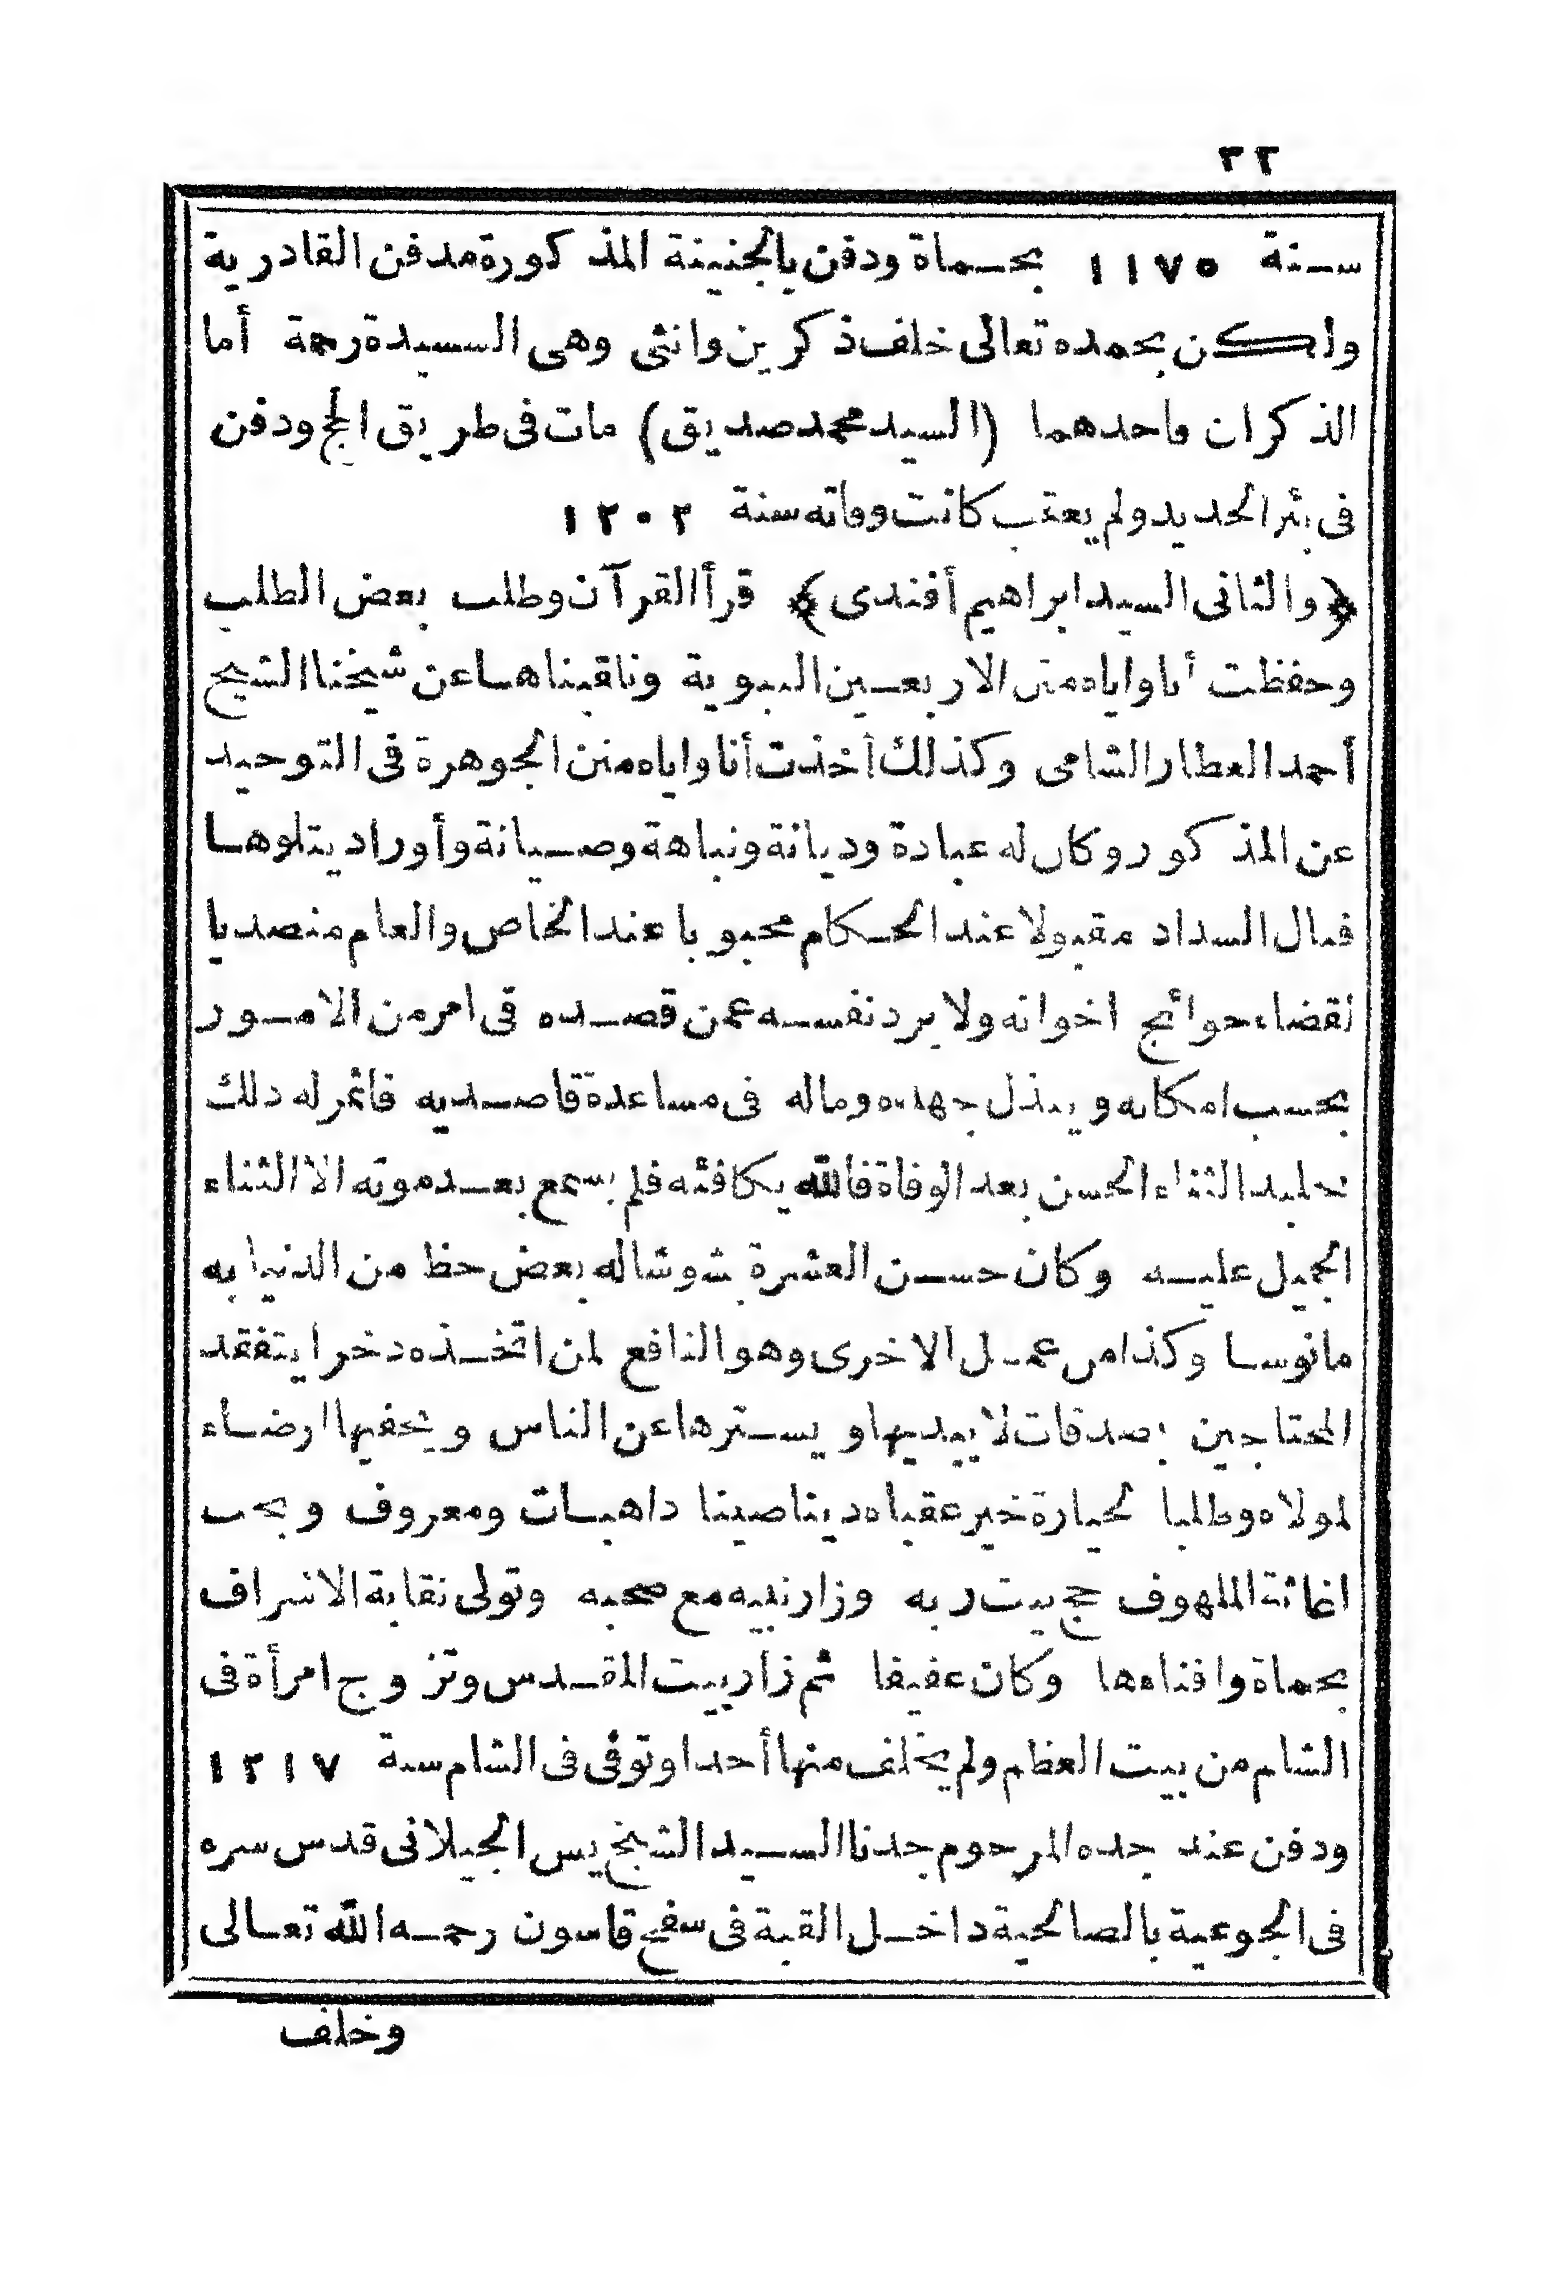 ٣٢
سنة ١١٧٥ بحماة ودفن بالجنينة المذكورة مدفن القادرية
ولكن بحمده تعالى خلف ذكرين وانثى وهى السيدة رحمة أما
الذكران فاحدهما (السيد محمد صديق) مات فى طريق الحج ودفن
فى بئر الحديد ولم يعقب كانت وفاته سنة ١٢٠٢
﴿والثانى السيد ابراهيم أفندى﴾ قرأ القرآن وطلب بعض الطلب
وحفظت أنا واياه متن الاربعين النبوية وتلقيناها عن شيخنا الشيخ
أحمد العطار الشامى وكذلك أخذت أنا واياه متن الجوهرة فى التوحيد
عن المذكور وكان له عبادة وديانة ونباهة وصيانة وأوراد يتلوها
فنال السداد مقبولا عند الحكام محبوبا عند الخاص والعام متصديا
لقضاء حوائج اخوانه ولا يرد نفسه عمن قصده فى امر من الامور
بحسب امكانه ويبذل جهده وماله فى مساعدة قاصديه فاثمر له ذلك
تخليد الثناء الحسن بعد الوفاة فالله يكافئه فلم يسمع بعد موته الا الثناء
الجميل عليه وكان حسن العشرة بشوشا له بعض حظ من الدنيا به
مانوسا وكذا من عمل الاخرى وهو النافع لمن اتخذه دخرا يتفقد
المحتاجين بصدقات لا يبديها ويسترها عن الناس ويخفيها ارضاء
لمولاه وطلبا لحيازة خير عقباه دينا صينا ذا هبات ومعروف ويحب
اغاثة الملهوف حج بيت ربه وزار نبيه مع صحبه وتولى نقابة الاشراف
بحماة وافتاءها وكان عفيفا ثم زار بيت المقدس وتزوج امرأة فى
الشام من بيت العظم ولم يخلف منها أحدا وتوفى فى الشام سنة ١٢١٧
ودفن عند جده المرحوم جدنا السيد الشيخ يس الجيلانى قدس سره
فى الجوعية بالصالحية داخل القبة فى سفح قاسون رحمه الله تعالى
وخلف